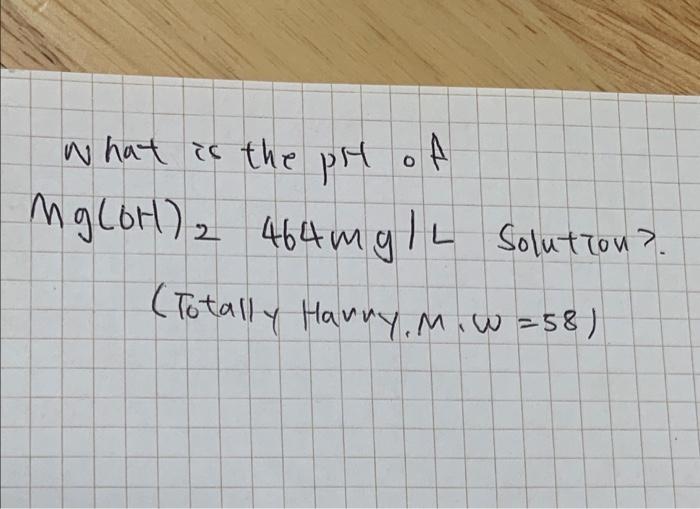 What is the pH of
Mg(OH)2 464mg/L Solution?.
(Totally Harry. M.W=58)